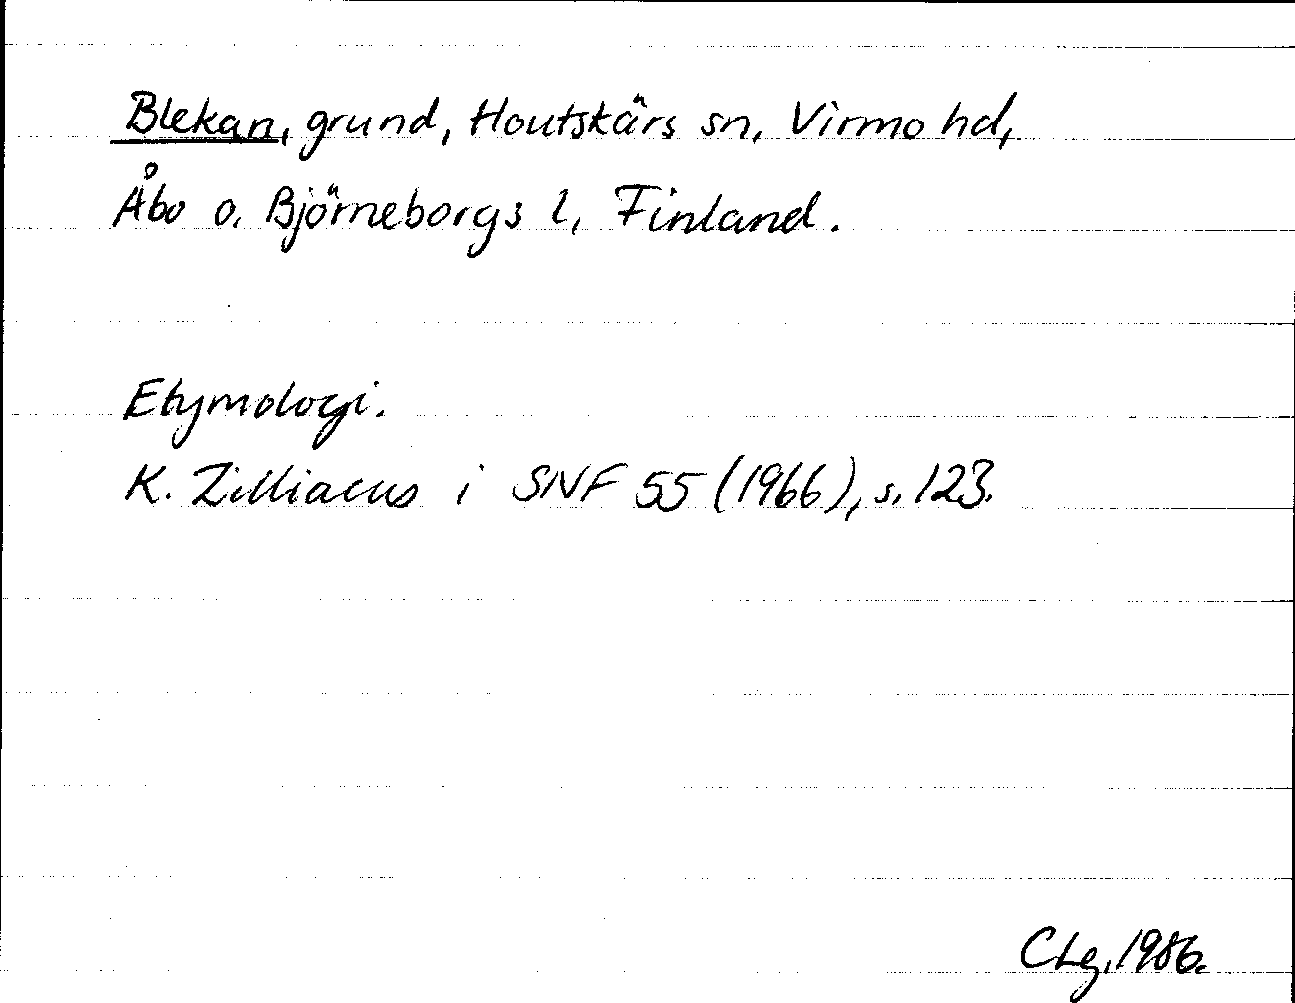 Blekan, grund, Houtskärs sn, Virmo hd,
Åbo o. Björneborgs l, Finland.
Etymologi.
K. Zilliacus i SNF 55 (1966), s. 123.
CLg, 1986.